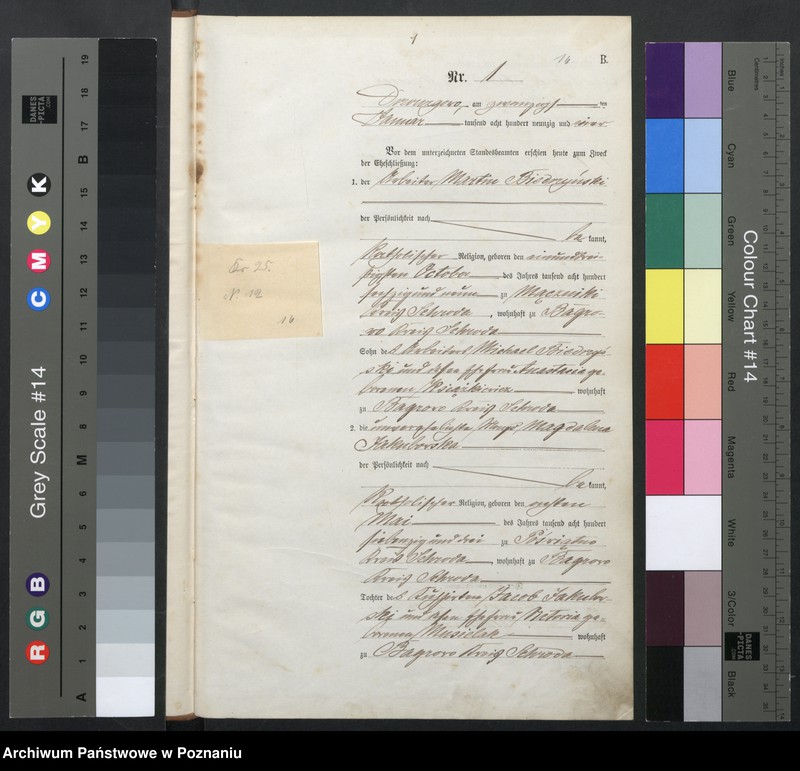 1
16 B.
Nr. 1
am zwanzigsten
Januar tausend acht hundert neunzig und
Vor dem unterzeichneten Standesbeamten erschien heute zum Zweck
der Eheschließung:
1. der Arbeiter Martin
der Persönlichkeit nach
be kannt,
katholischer Religion, geboren den einunddrei-
ßigsten October des Jahres tausend acht hundert
sechszig und neun zu Mączniki
Kreis Schroda, wohnhaft zu Bagro-
wo Kreis Schroda
Sohn des Arbeiters Michael
ski und dessen Ehefrau Anastasia ge-
borenen wohnhaft
zu Bagrowo Kreis Schroda
2. die unverehelichte Magd Magdalena
Jakubowska
der Persönlichkeit nach
be kannt,
katholischer Religion, geboren den
Mai des Jahres tausend acht hundert
siebenzig und drei zu
Kreis Schroda, wohnhaft zu Bagrowo
Kreis Schroda
Tochter des Jacob Jakubow-
ski und dessen Ehefrau Victoria ge-
borenen Musielak wohnhaft
zu Bagrowo Kreis Schroda
No 12
16
Grey Scale #14
R G B
C M Y K
A 1 2 3 4 5 6 M 8 9 10 11 12 13 14 15 B 17 18 19
DANES
-PICTA
.COM
Colour Chart #14
Blue
Cyan
Green
Yellow
Red
Magenta
White
3/Color
Black
Centimetres
Inches
DANES
-PICTA
.COM
Archiwum Państwowe w Poznaniu